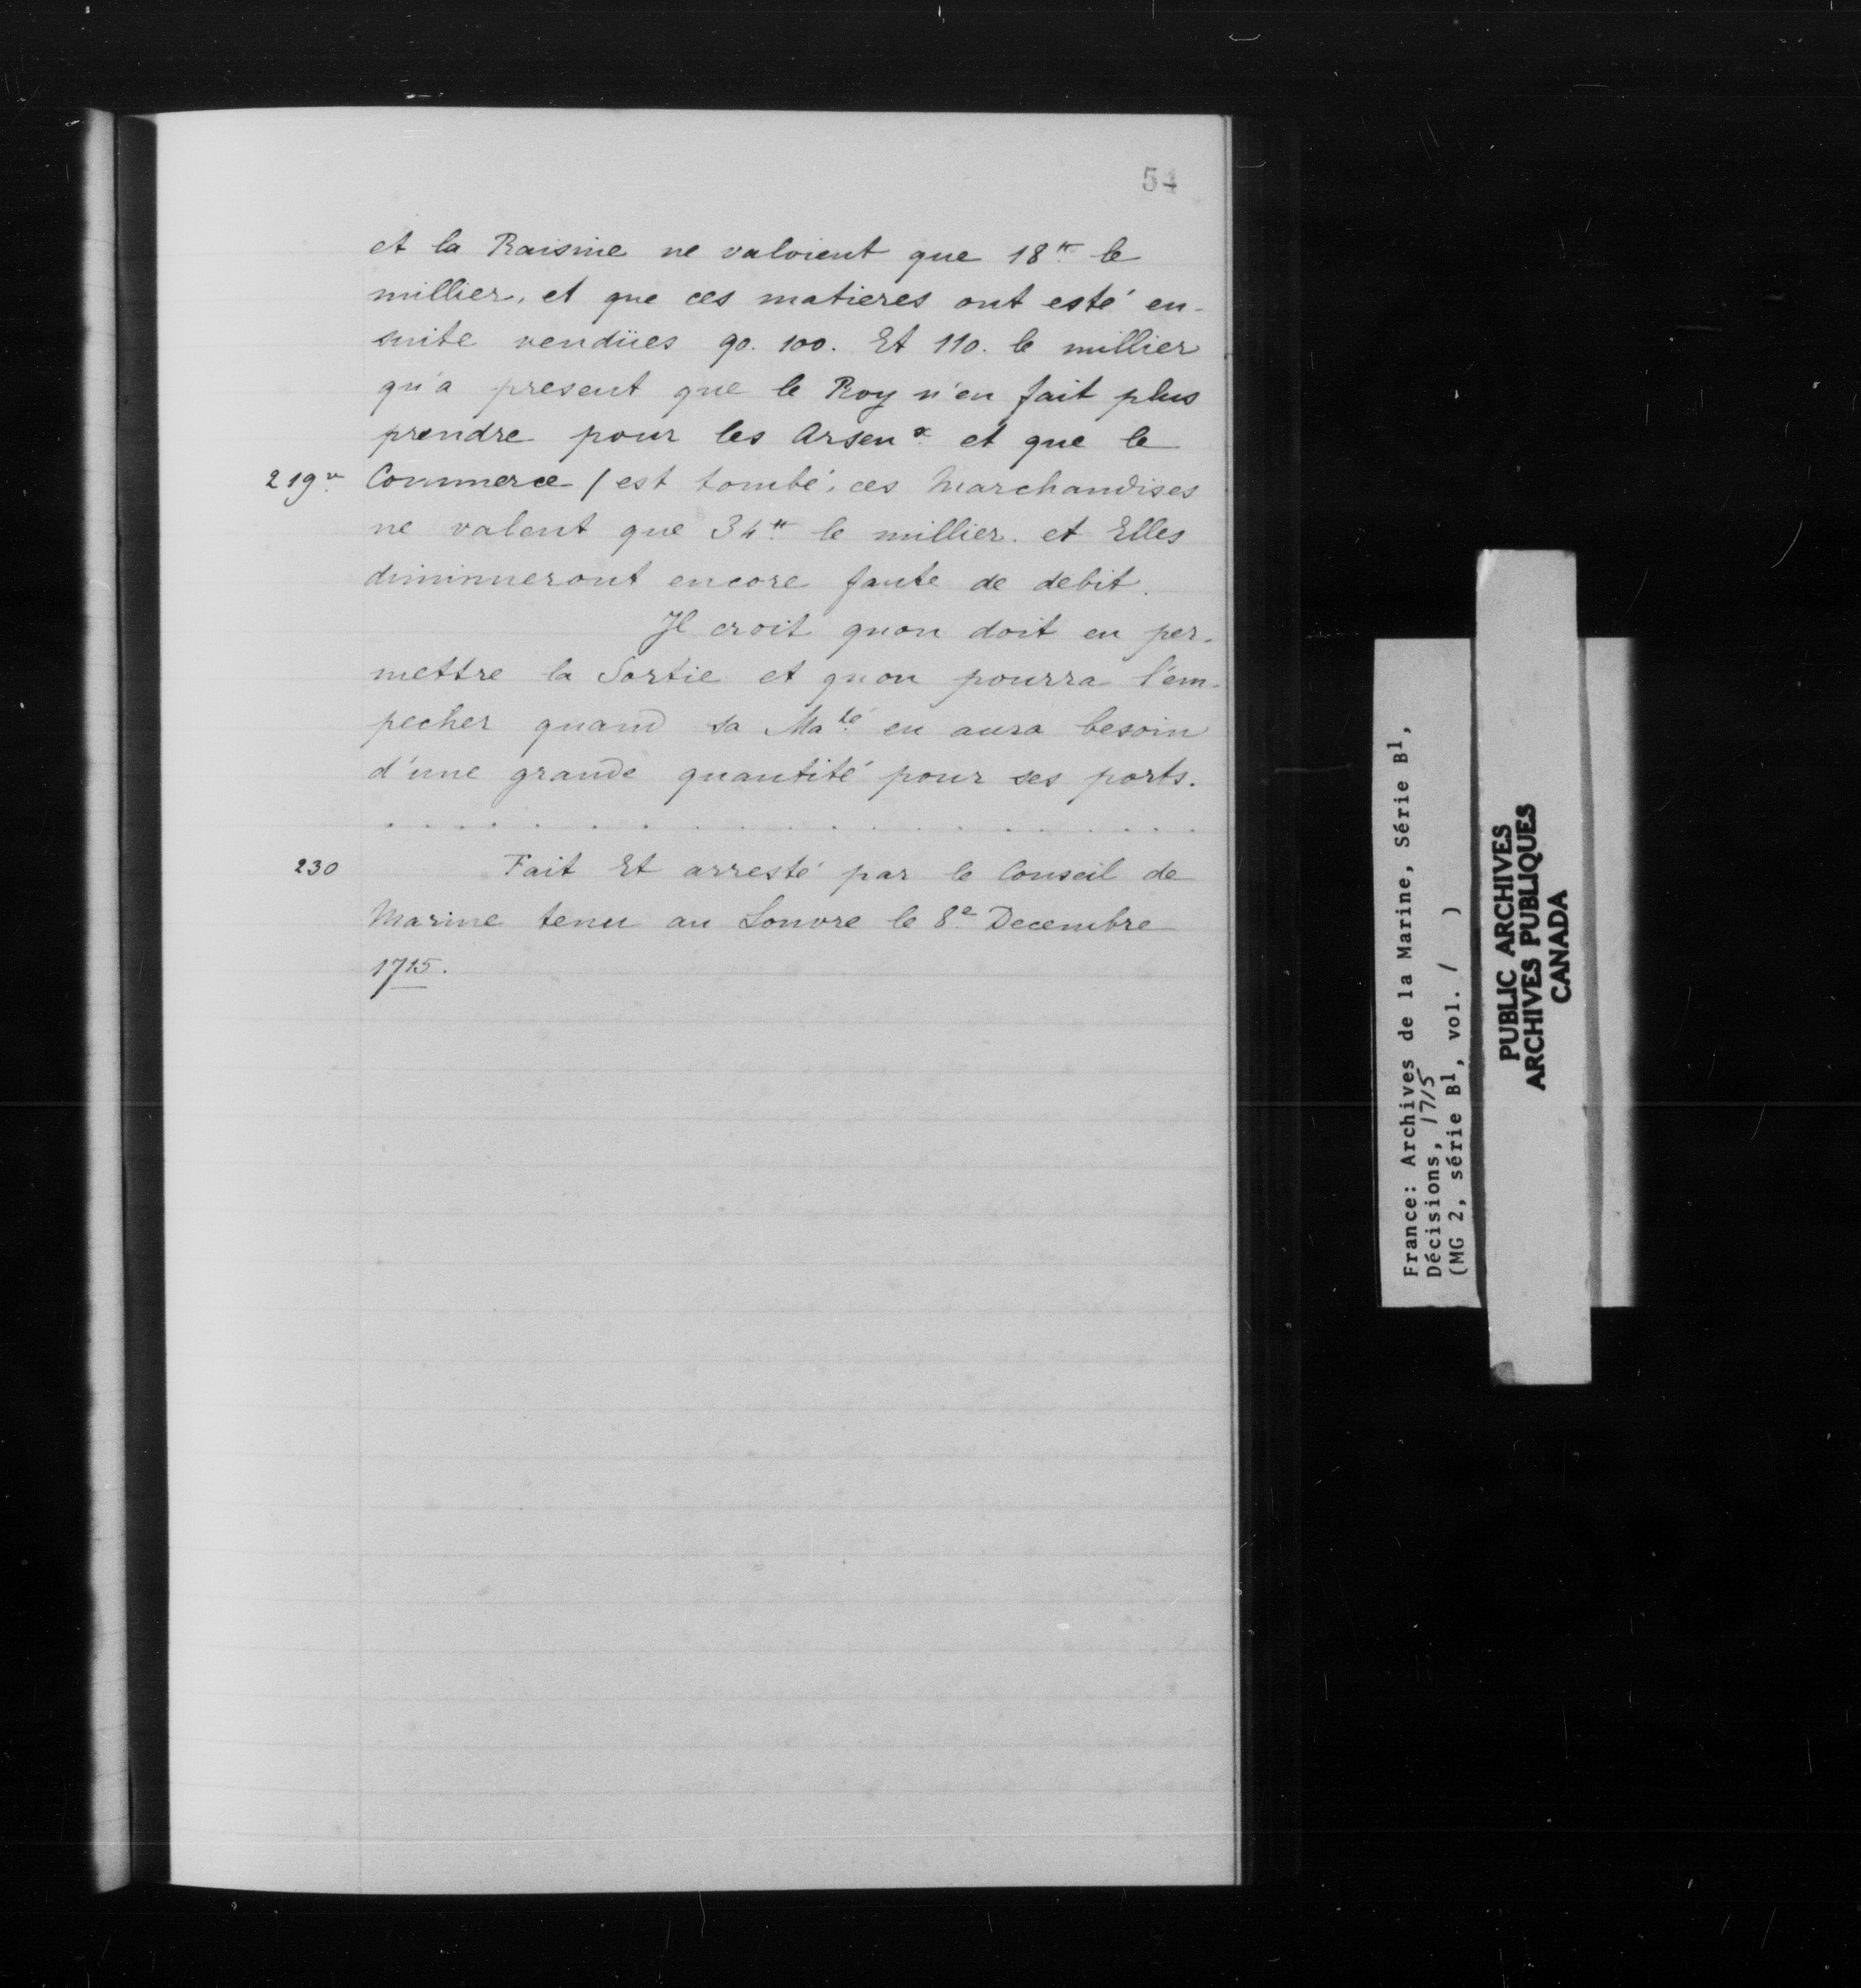 54
et la Raisine ne valoient que 18.tt le
millier, et que ces matieres ont esté en-
suite vendües 90. 100. Et 110. le millier
qu'a present que le Roy n'en fait plus
prendre pour les Arsen.x et que le
219v. Commerce / est tombé, ces Marchandises
ne valent que 34.tt le millier. et Elles
diminueront encore faute de debit.
Il croit quon doit en per-
mettre la Sortie et quon pourra l'em-
pecher quand sa Ma.té en aura besoin
d'une grande quantité pour ses ports.
. . . . . . . . . . . . . . . . . . .
230 Fait Et arresté par le Conseil de
Marine tenu au Louvre le 8.e Decembre
1715.
France: Archives de la Marine, Série B1,
Décisions, 1715
(MG 2, série B1, vol. 1 )
PUBLIC ARCHIVES
ARCHIVES PUBLIQUES
CANADA